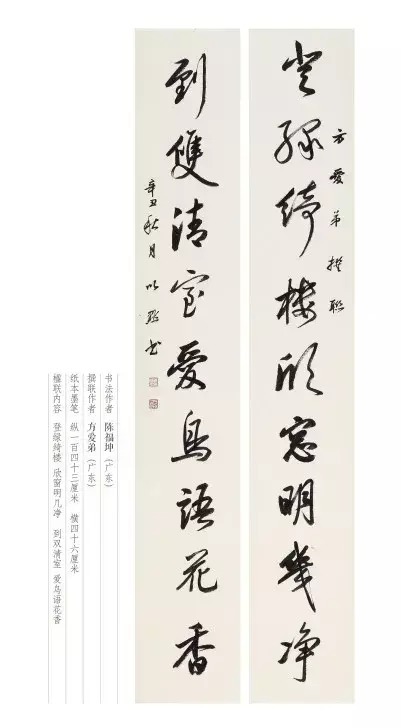 登綠綺樓欣窓明幾净
方愛弟撰聯
到雙清室愛鳥語花香
辛丑秋月以书
书法作者 陈福坤（广东）
撰联作者 方爱弟（广东）
纸本墨笔 纵一百四十三厘米 横四十六厘米
楹联内容 登绿绮楼 欣窗明几净 到双清室 爱鸟语花香